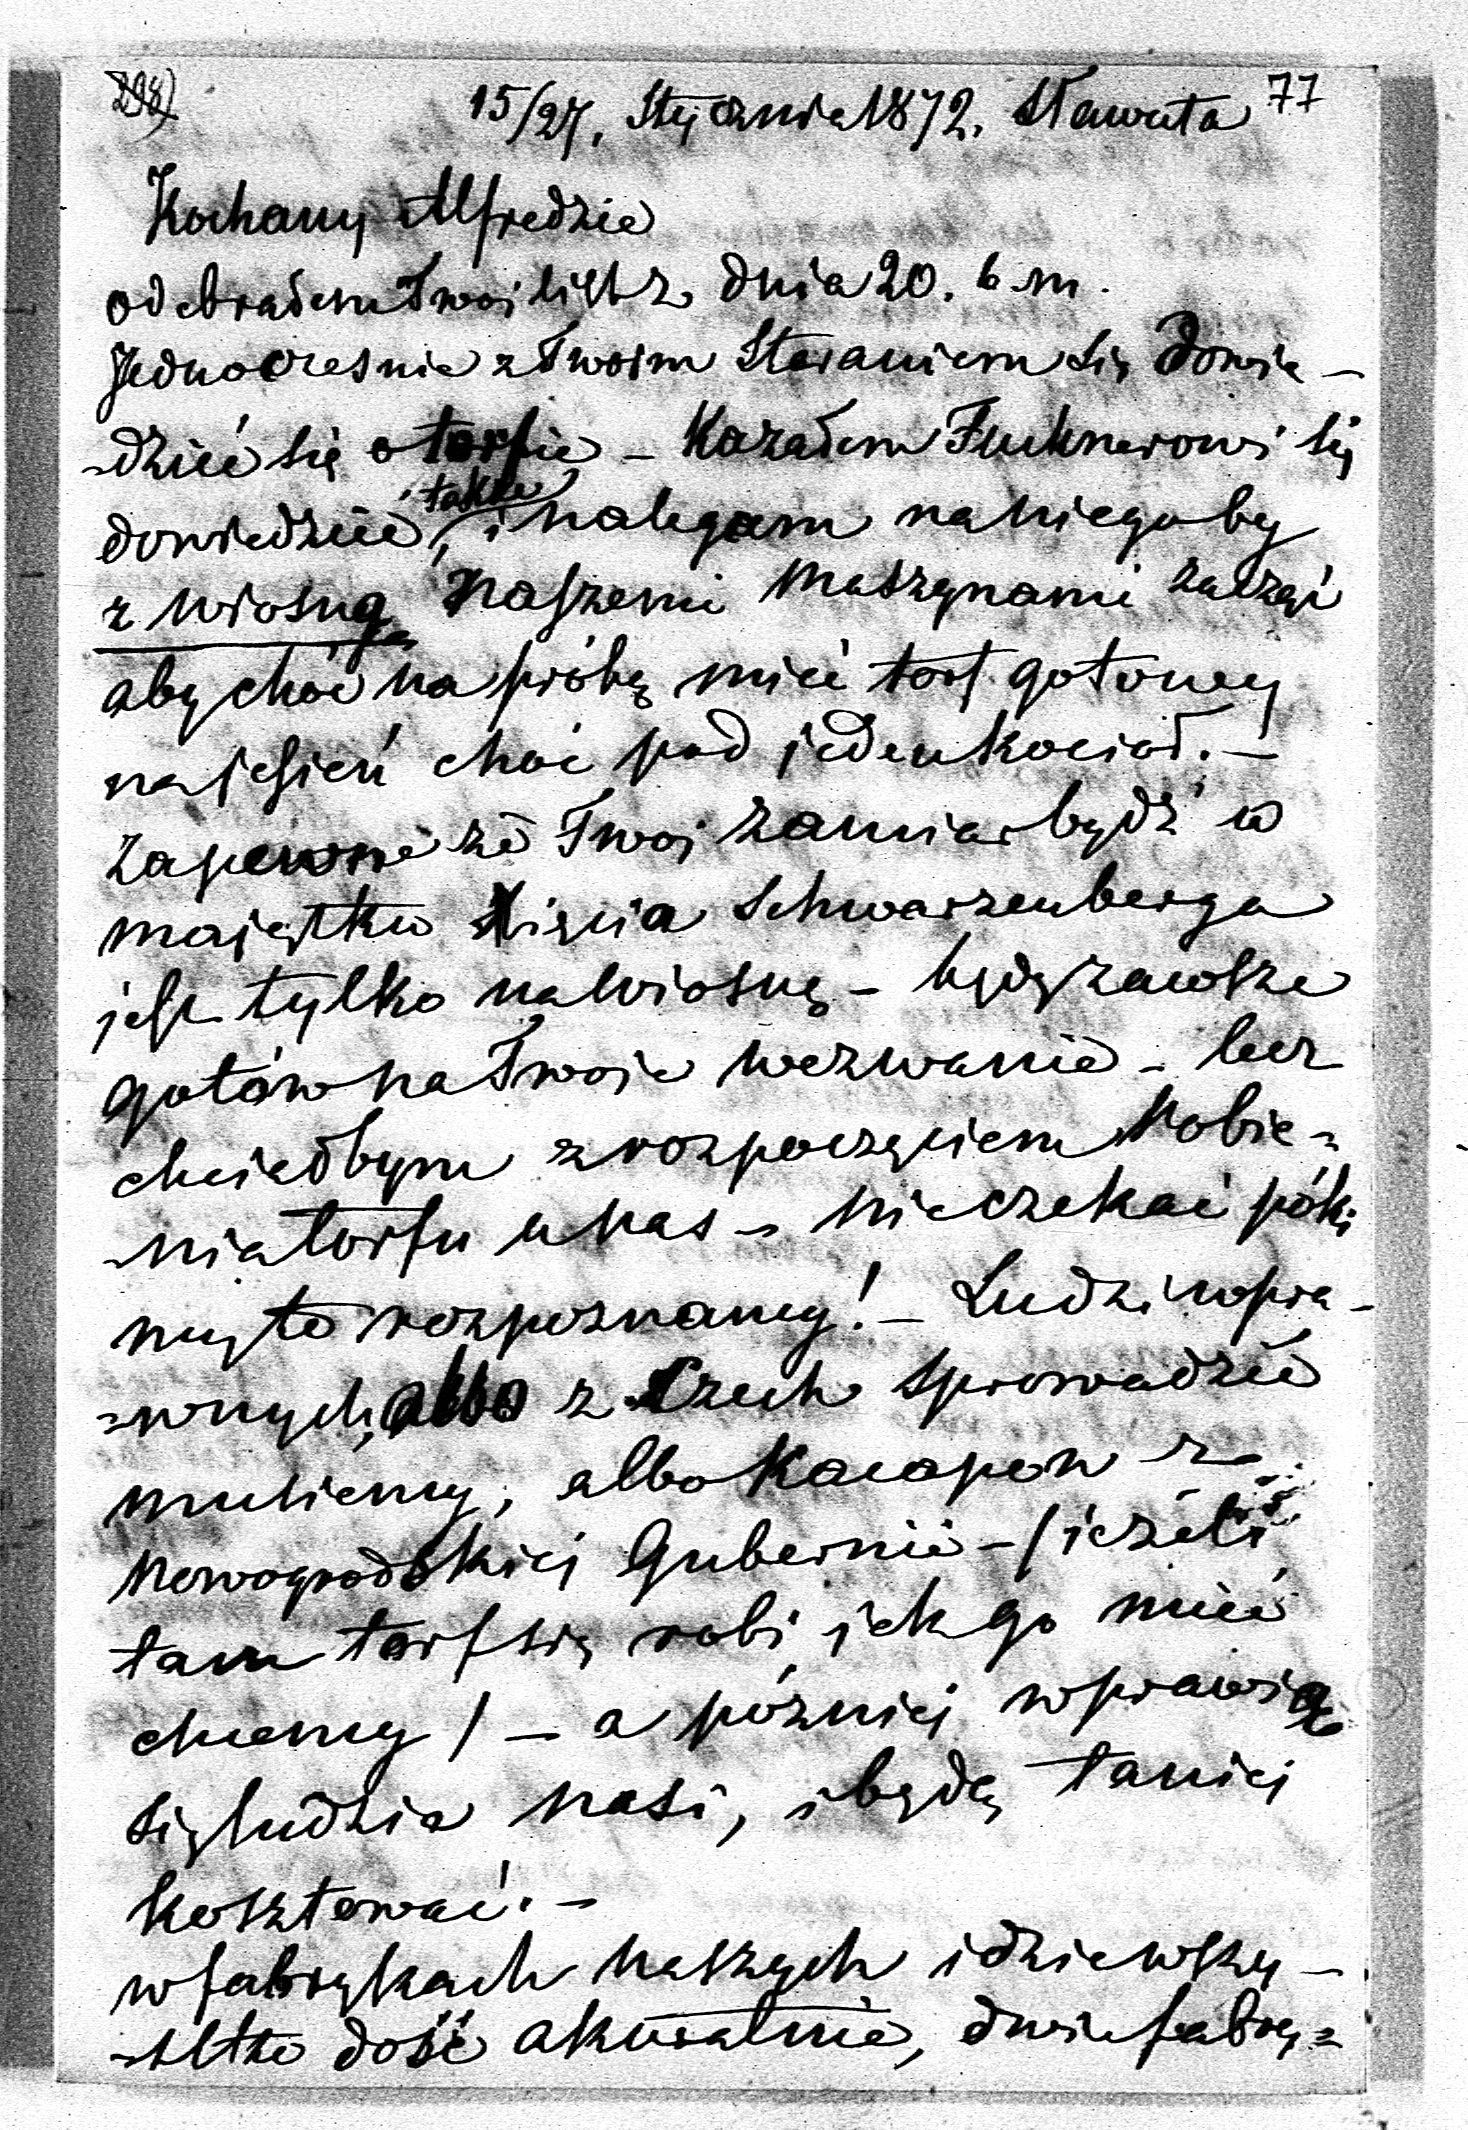 298) 15/27, Stycznia 1872. Sławuta 77
Kochany Alfredzie
odebrałem Twoj list z dnia 20. b. m.
Jednocześnie z Twoim Staraniem się dowie-
-dzieć się o torfie – Kazałem Fuknerowi się
dowiedzieć, także i nalegam na niego by
z wiosną naszemi maszynami zaczęć
aby choć na próbę mieć torf gotowy
na jesień choć pod jeden kocioł. –
Zapewne że Twoj zamiar bydź w
majątku Xięcia Schwarzenberga
jest tylko na wiosnę – będę zawsze
gotów na Twoje wezwanie – lecz
chciałbym z rozpoczęciem Robie-
-nia torfu u nas – nie czekać póki
my to rozpoznamy! – Ludzi wpra-
-wnych, albo z Czech sprowadzić
musiemy, albo Kacapow z
Nowogrodskiej Gubernii – /jeżeli
tam torf się robi jak go mieć
chcemy / – a pózniej wprawią
się ludzie nasi, i będą taniej
kosztować. –
w fabrykach naszych idzie wszy-
-stko dość akuratnie, dwie fabry-